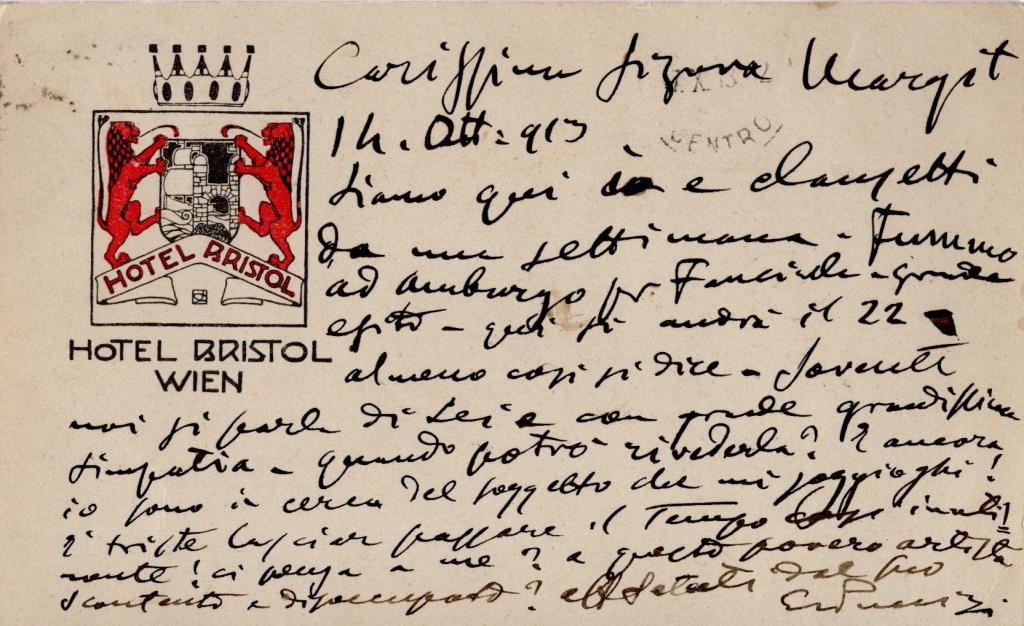 Carissima Signora Margit
14. Ott. 913
X. 13
CENTRO
Siamo qui io e Clausetti
da una settimana - Fummo
ad Amburgo per Fanciulla - grande
esito - qui si andrà il 22
almeno così si dice - Sovente
HOTEL BRISTOL
HOTEL BRISTOL
WIEN
noi si parla di Lei e con grande grandissima
simpatia - quando potrò rivederla? E ancora
io sono in cerca del soggetto che mi soggioghi!
È triste lasciar passare il Tempo così inutil=
mente! ci pensa a me? a questo povero artista
scontento e disoccupato? aff Saluti dal suo